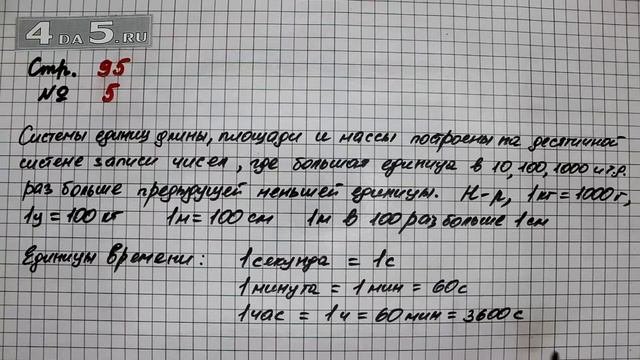 4 DA 5.RU
Стр. 95
№ 5
Системы единиц длины, площади и массы построены на десятичной
системе записи чисел, где большая единица в 10, 100, 1000 и т.д.
раз больше предыдущей меньшей единицы. Н-р, 1 кг = 1000 г,
1 ц = 100 кг 1 м = 100 см 1 м в 100 раз больше 1 см
Единицы времени: 1 секунда = 1 с
1 минута = 1 мин = 60 с
1 час = 1 ч = 60 мин = 3600 с